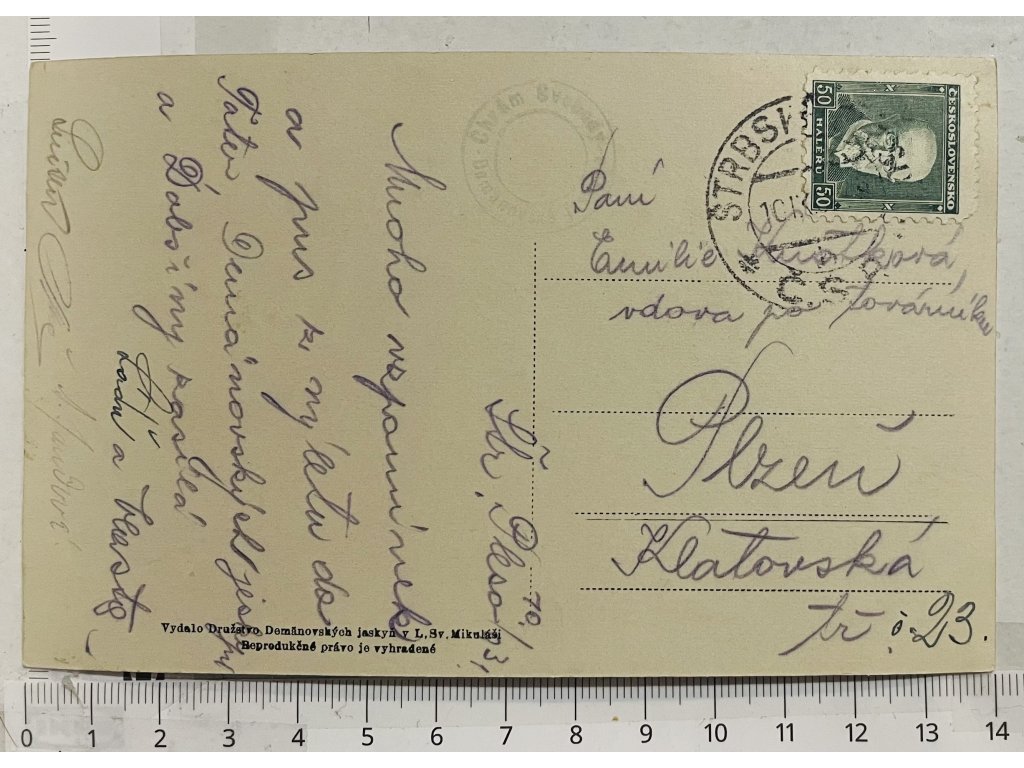 Štr. Pleso 10./
Mnoho vzpomínek
a pus ze výletu do
Tater Demänovských jeskyň
a Dobšiny zasílá
Láďa a Vlasta
Paní
Emilie
vdova po továrníku
Plzeň
Klatovská
tř. č. 23.
ČESKOSLOVENSKO
50 HALÉŘŮ 50
ŠTRBSK
ČS
Chrám Svobody
Vydalo Družstvo Demänovských jaskyň v L. Sv. Mikuláši
Reprodukčné právo je vyhradené
0 1 2 3 4 5 6 7 8 9 10 11 12 13 14